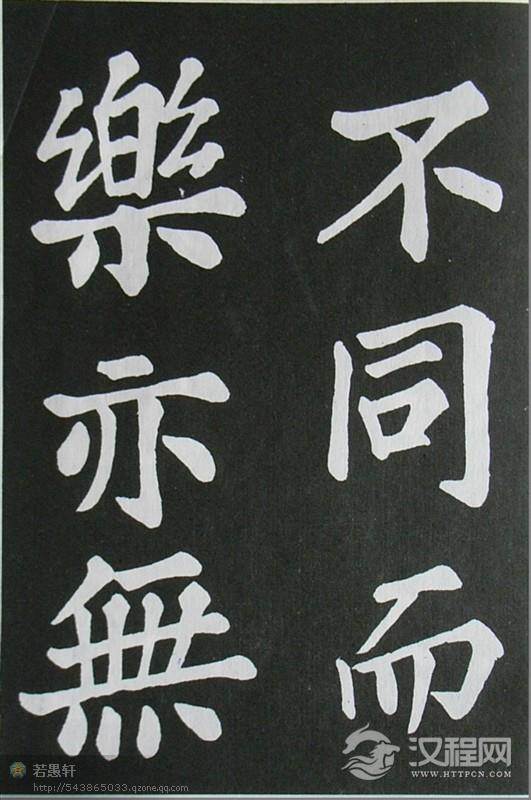 不同而
樂亦無
若愚轩
http://543865033.qzone.qq.com
汉程网
WWW.HTTPCN.COM